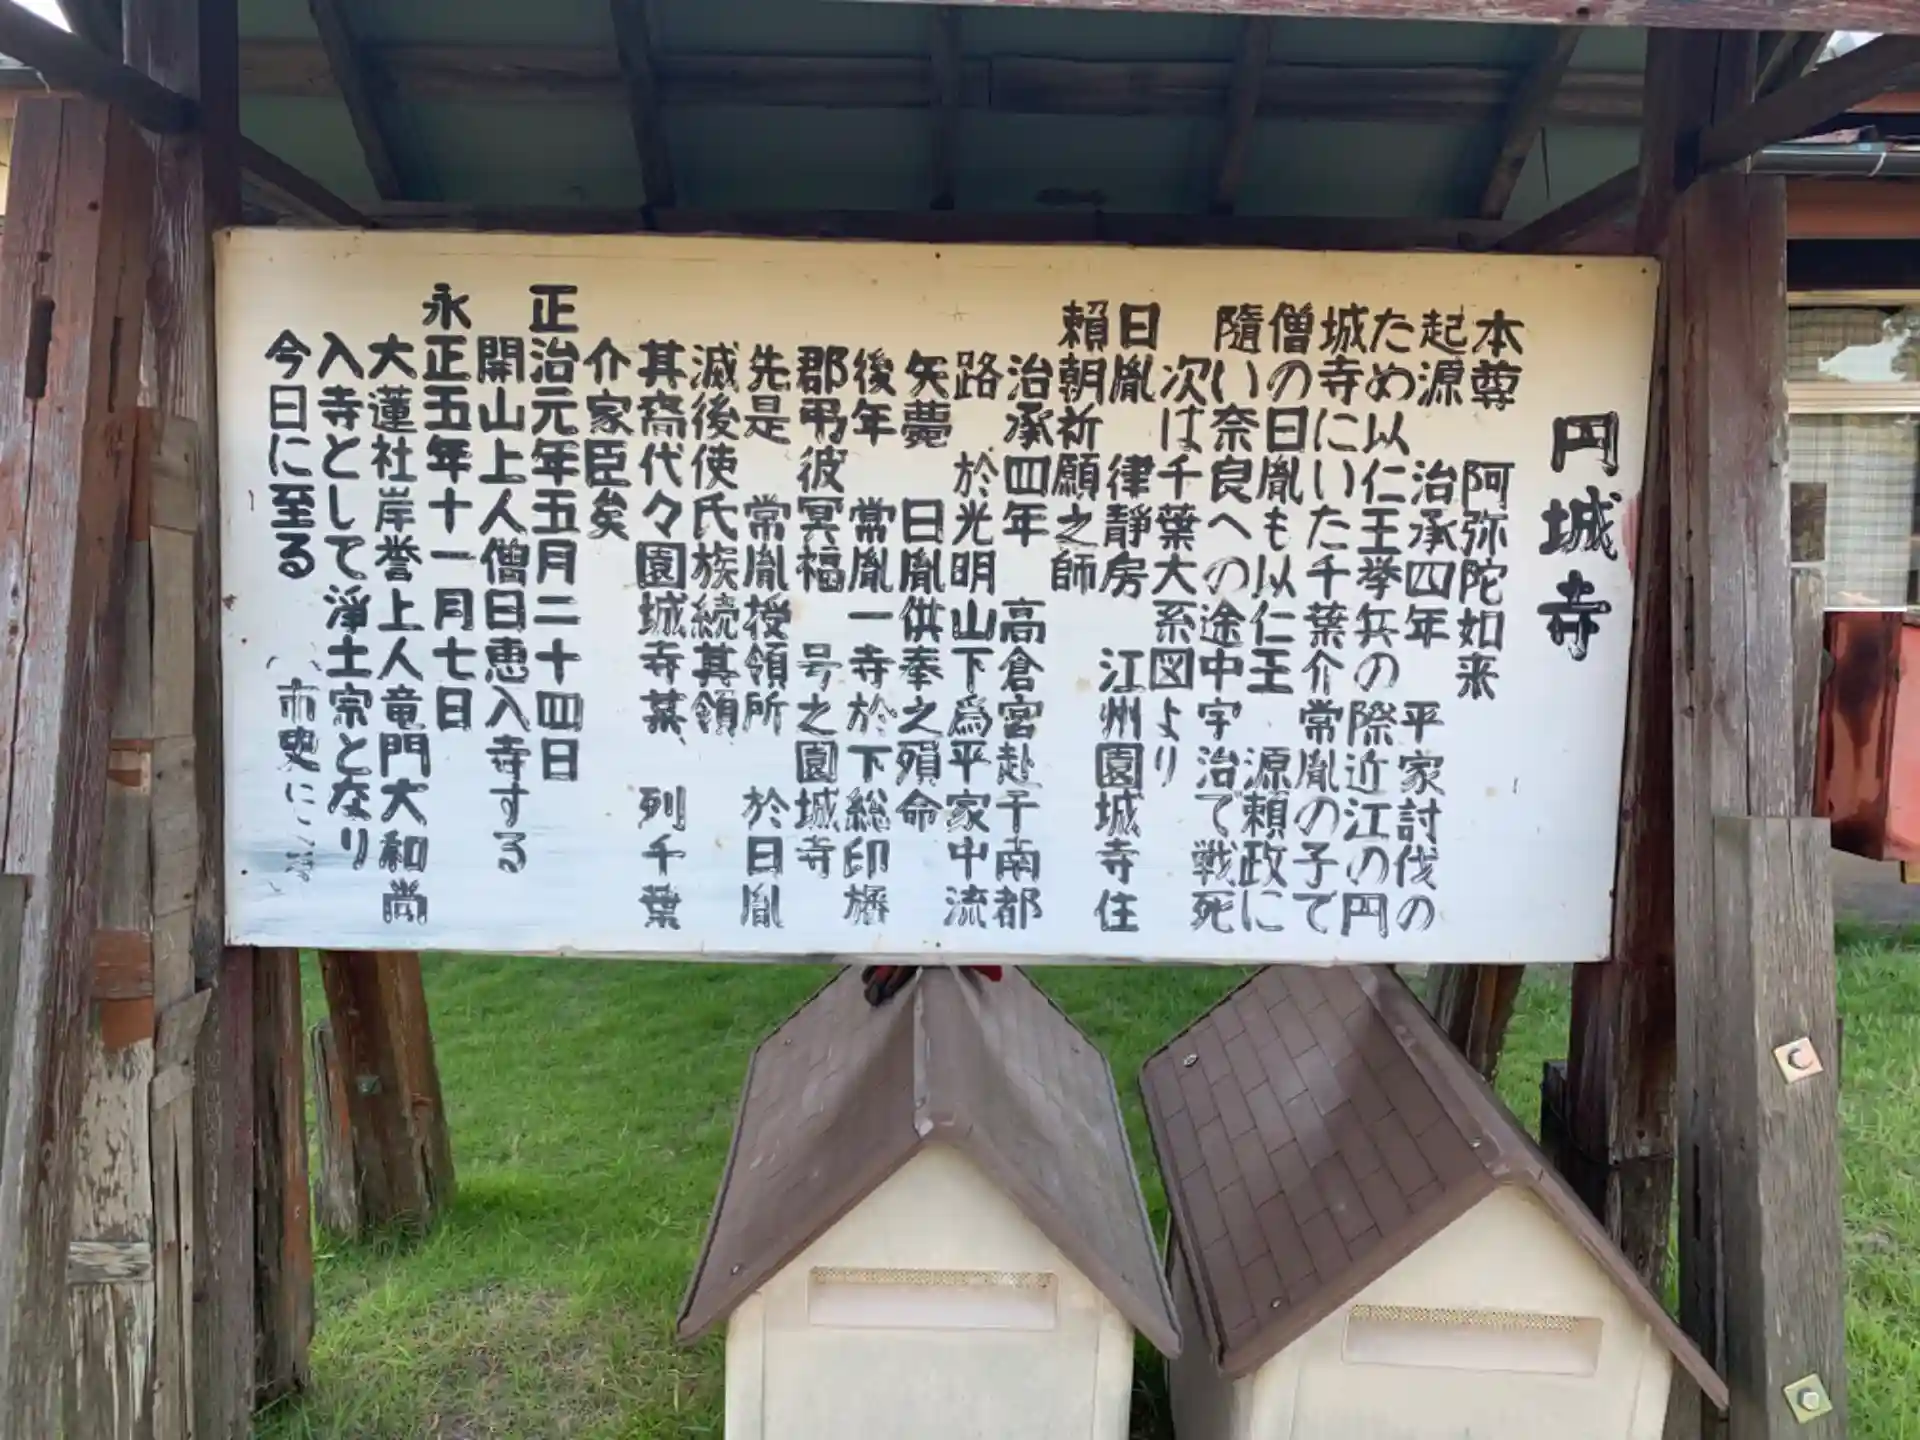 円城寺
本尊 阿弥陀如来
起源 治承四年 平家討伐の
ため以仁王挙兵の際近江の円
城寺にいた千葉介常胤の子で
僧の日胤も以仁王 源頼政に
隨い奈良への途中宇治で戦死
次は千葉大系図より
日胤 律靜房 江州園城寺住
賴朝祈願之師
治承四年 高倉宮赴于南都
路 於光明山下為平家中流
矢薨 日胤供奉之殞命
後年 常胤一寺於下総印旛
郡弔彼冥福 号之園城寺
先是 常胤授領所 於日胤
滅後使氏族続其領
其裔代々園城寺某 列千葉
介家臣矣
正治元年五月二十四日
開山上人僧日恵入寺する
永正五年十一月七日
大蓮社岸誉上人竜門大和尚
入寺として浄土宗となり
今日に至る
市史に